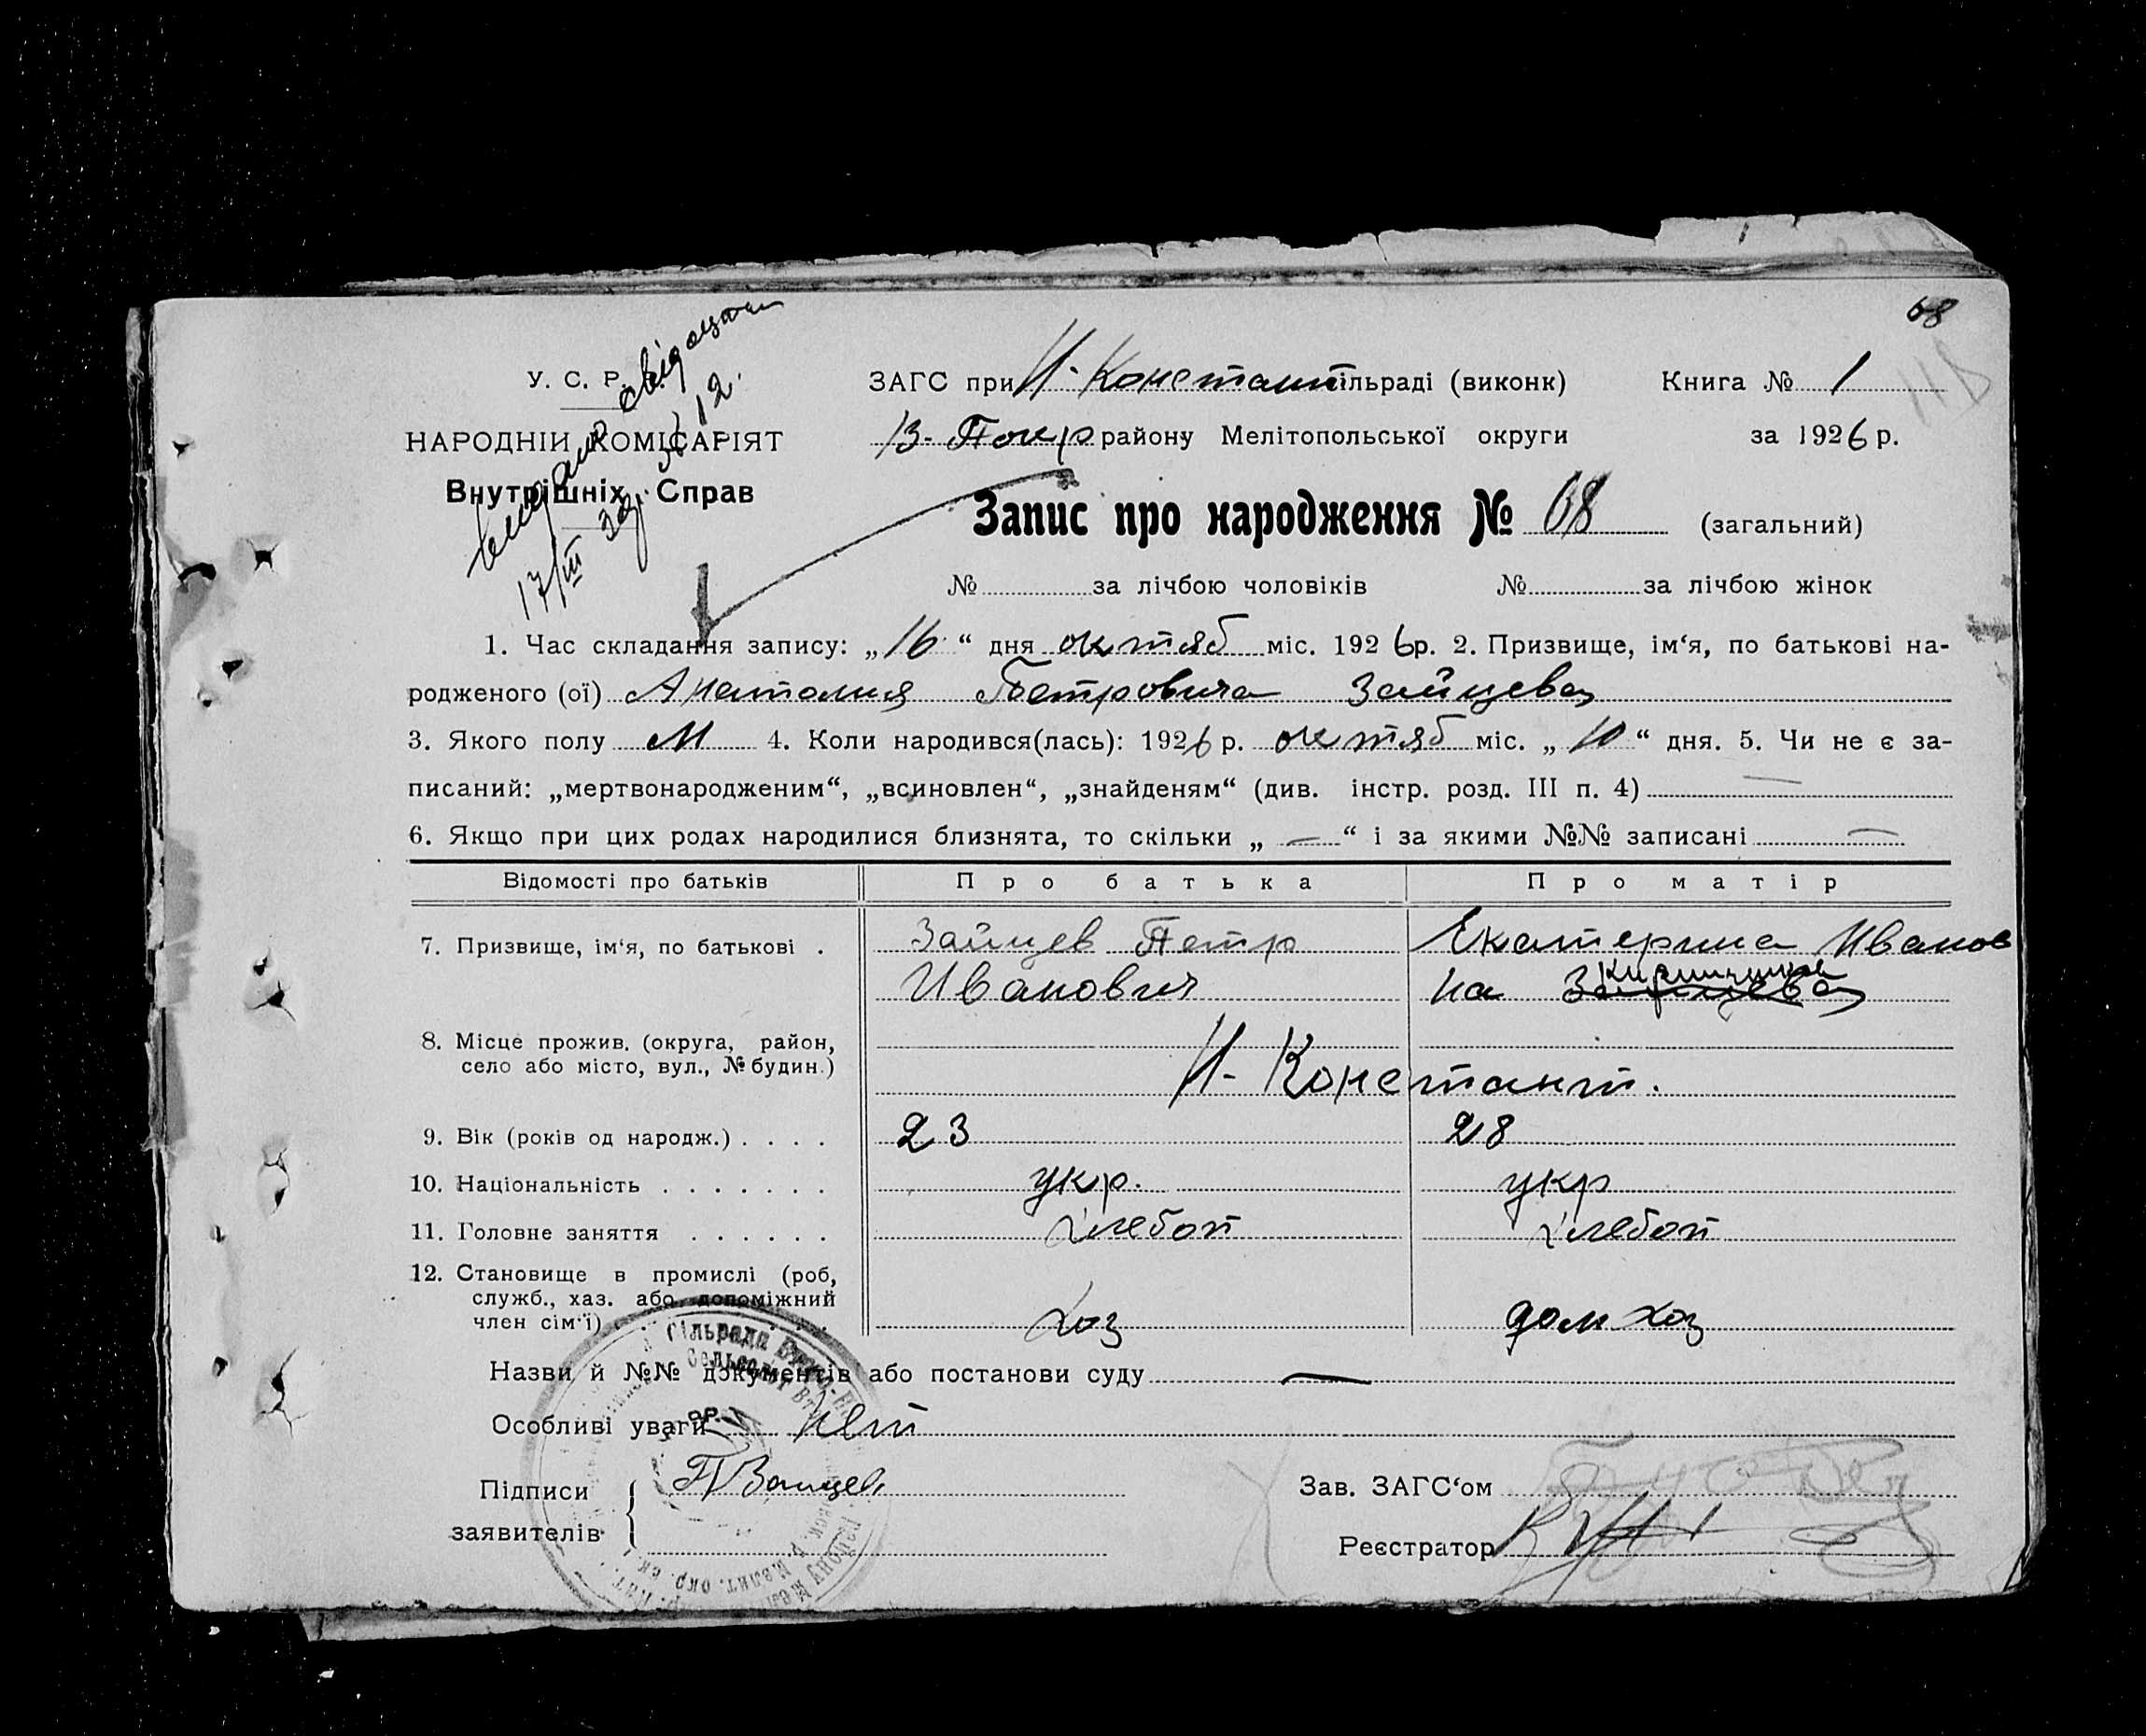 68
У. С. Р. Р.
ЗАГС при Н-Констант сільраді (виконк)
Книга № 1
НАРОДНІЙ КОМІСАРІЯТ
В-Покр району Мелітопольської округи
за 1926 р.
Внутрішніх Справ
видано свідоцтво
17/III 32 № 12.
Запис про народження № 68 (загальний)
№ за лічбою чоловіків № за лічбою жінок
1. Час складання запису: „16“ дня октяб міс. 1926р. 2. Призвище, ім‘я, по батькові на-
родженого (ої) Анатолия Петровича Зайцева
3. Якого полу М 4. Коли народився(лась): 1926 р. октяб міс. „10“ дня. 5. Чи не є за-
писаний: „мертвонародженим“, „всиновлен“, „знайденям“ (див. інстр. розд. III п. 4) —
6. Якщо при цих родах народилися близнята, то скільки „ — “ і за якими №№ записані —
Відомості про батьків Про батька Про матір
7. Призвище, ім‘я, по батькові . Зайцев Петр Екатерина Иванов
Иванович на Зайцева
8. Місце прожив. (округа, район,
село або місто, вул., № будин.) Н-Констант.
9. Вік (років од народж.) . . . . 23 28
10. Національність . . . . . . . укр. укр
11. Головне заняття . . . . . . хлебоп хлебоп
12. Становище в промислі (роб,
служб., хаз. або допоміжний
член сім‘ї) хоз дом хоз
Назви й №№ документів або постанови суду —
Особливі уваги Нет
Підписи П Зайцев
Зав. ЗАГС‘ом
заявителів
Реєстратор